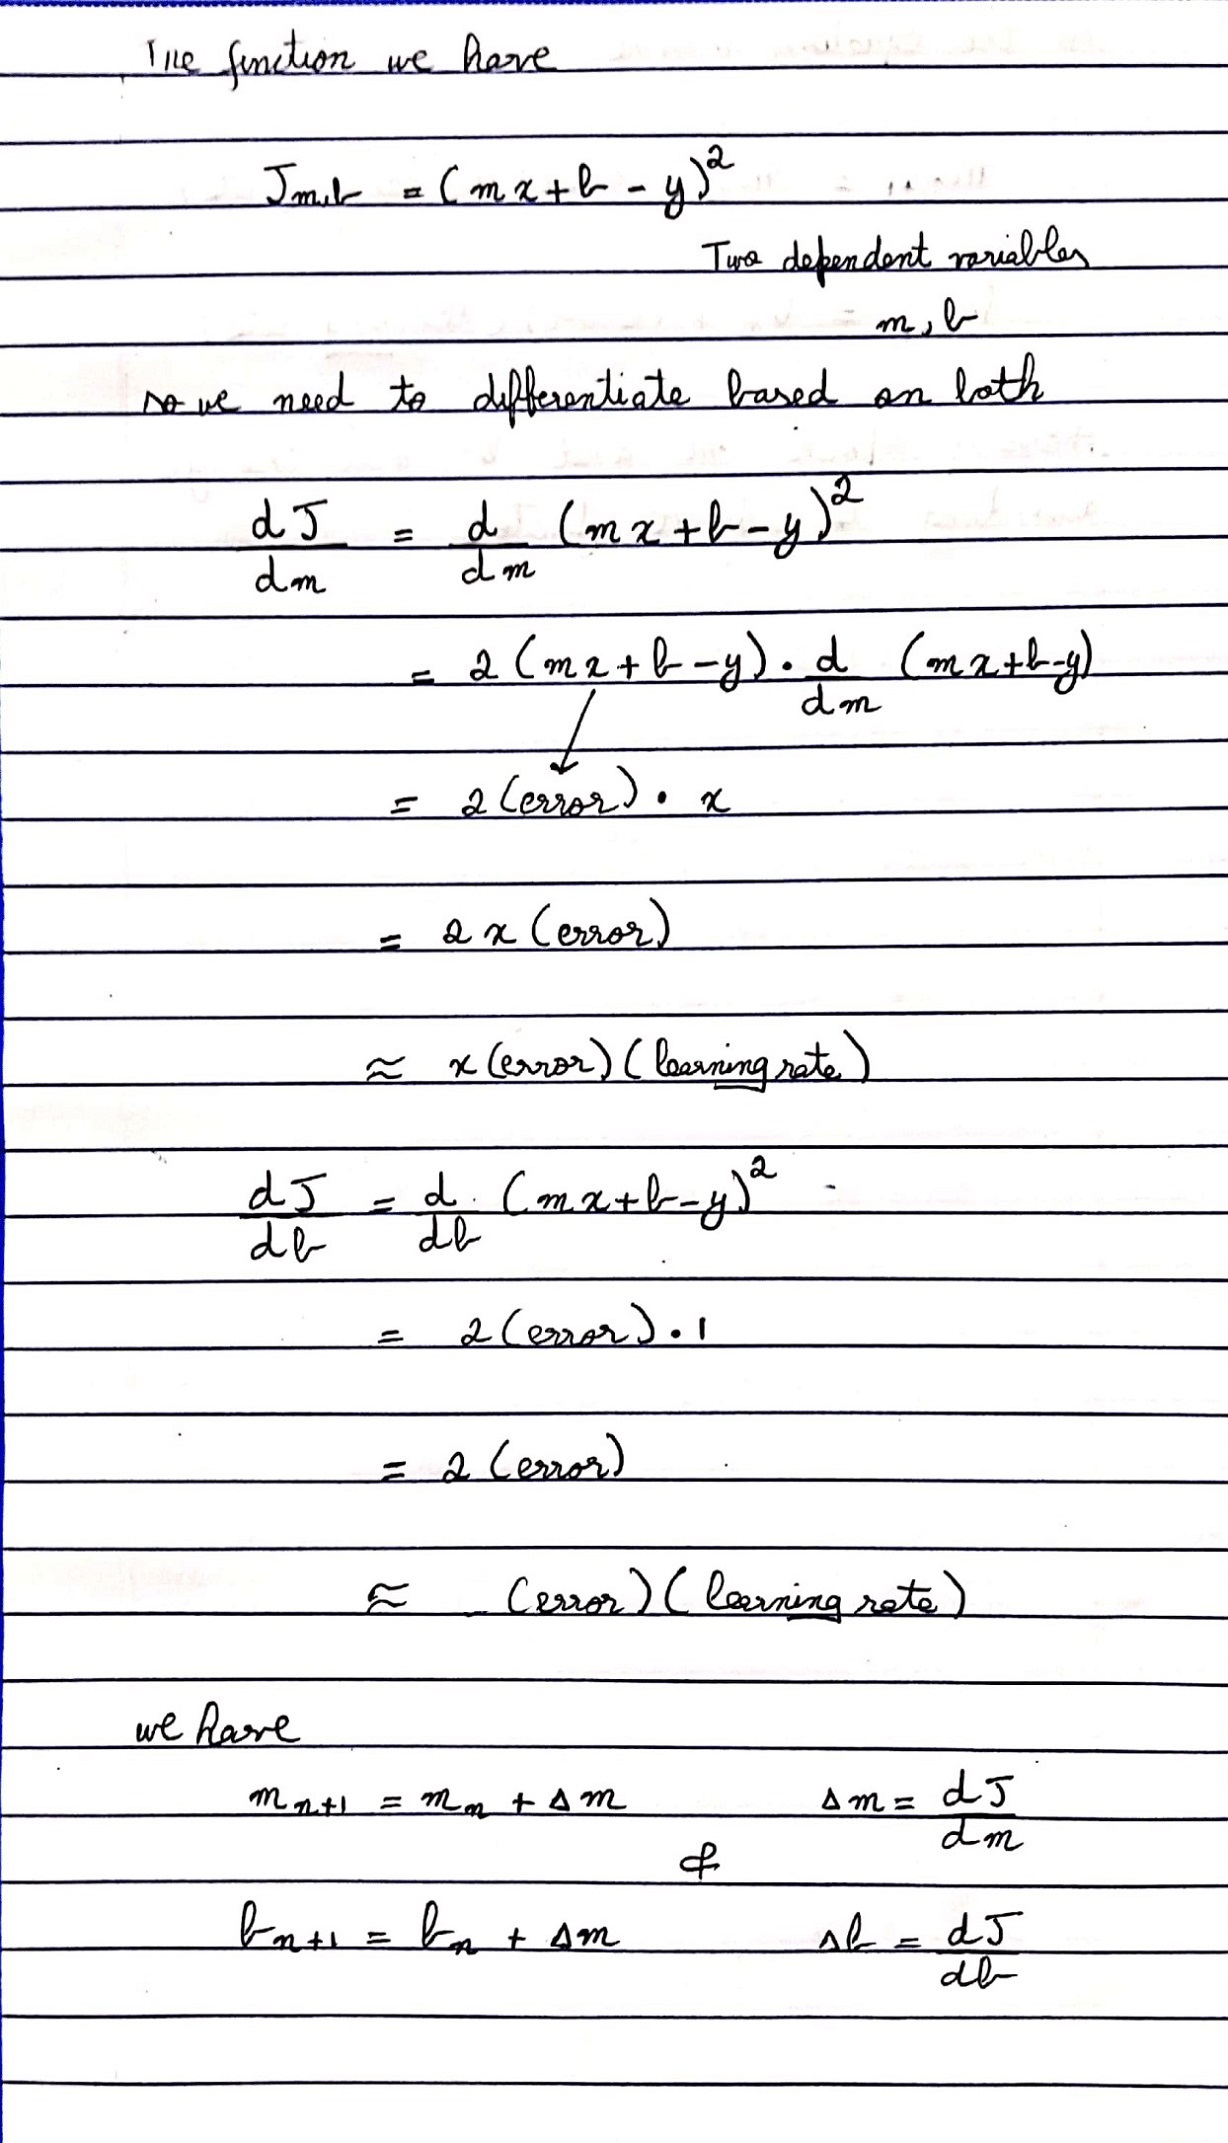 The function we have
J m,b = (mx + b - y)²
Two dependent variables
m, b
so we need to differentiate based on both
dJ/dm = d/dm (mx + b - y)²
= 2 (mx + b - y) · d/dm (mx + b - y)
= 2 (error) · x
= 2x (error)
≈ x (error) (learning rate)
dJ/db = d/db (mx + b - y)²
= 2 (error) · 1
= 2 (error)
≈ (error) (learning rate)
we have
m n+1 = m n + Δm Δm = dJ/dm
&
b n+1 = b n + Δm Δb = dJ/db